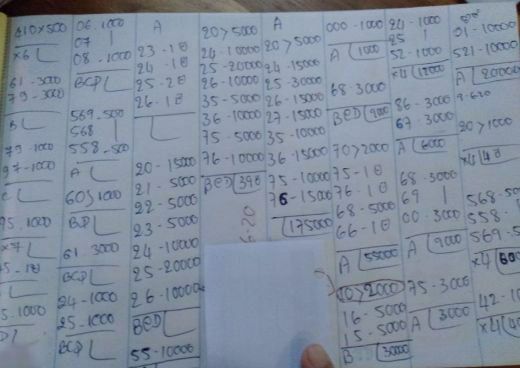 610×500
×6
61-3000
79-3000
B
79-1000
97-1000
C
95.1000
×7
5-1000
06.1000
07 |
08-1000
BCD
569-500
568 |
558-500
A
60>1000
BD
61.3000
BCD
24-1000
25-1000
BCD
A
23-1θ
24-1θ
25-2θ
26-1θ
20-15000
21-5000
22-5000
23-5000
24-10000
25-20000
26-10000
BCD
55-10000
20>5000
24-10000
25-20000
26-10000
35-5000
36-10000
75-5000
76-10000
BCD 39θ
A
20>5000
24-15000
25-30000
26-15000
27-15000
35-10000
36-15000
75-10000
76-15000
175000
000-1000
A 1000
68-3000
BCD 9000
70>2000
75-1θ
76-1θ
68-5000
66-1θ
A 55000
10>2000
16-5000
15-5000
B 30000
24-1000
25 |
52-1000
×4 12000
86-3000
67-3000
A 6000
68-3000
69 |
00-3000
A 9000
75-3000
A 3000
01-10000
521-10000
A 20000
9-6-20
20>1000
×4
568-50
558-1
569-5
×4
42-10
×4